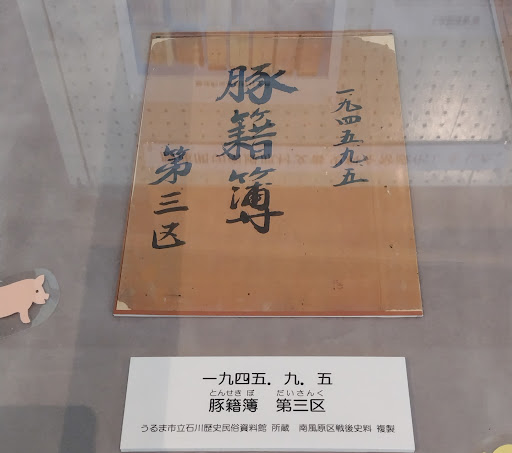 一九四五九五
豚籍簿
第三区
一九四五．九．五
とんせき ぼ だいさんく
豚籍簿 第三区
うるま市立石川歴史民俗資料館 所蔵 南風原区戦後史料 複製